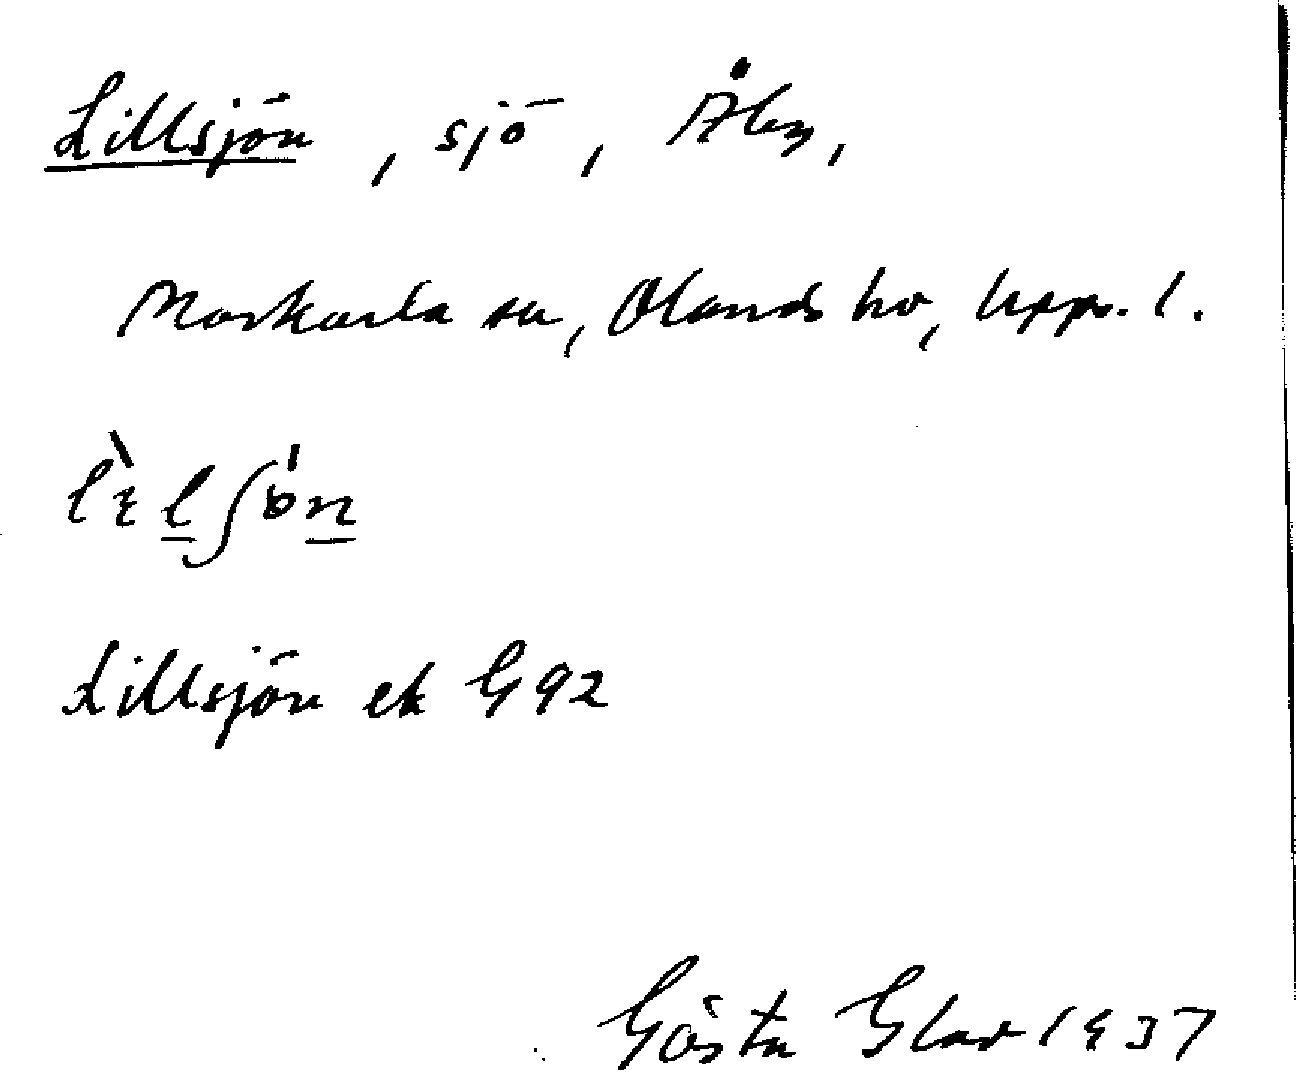 Lillsjön, sjö, Åby,
Morkarla sn, Olands hd, Upps. l.
lɩ̀lʃön
Lillsjön ek G92
Gösta Glad 1937